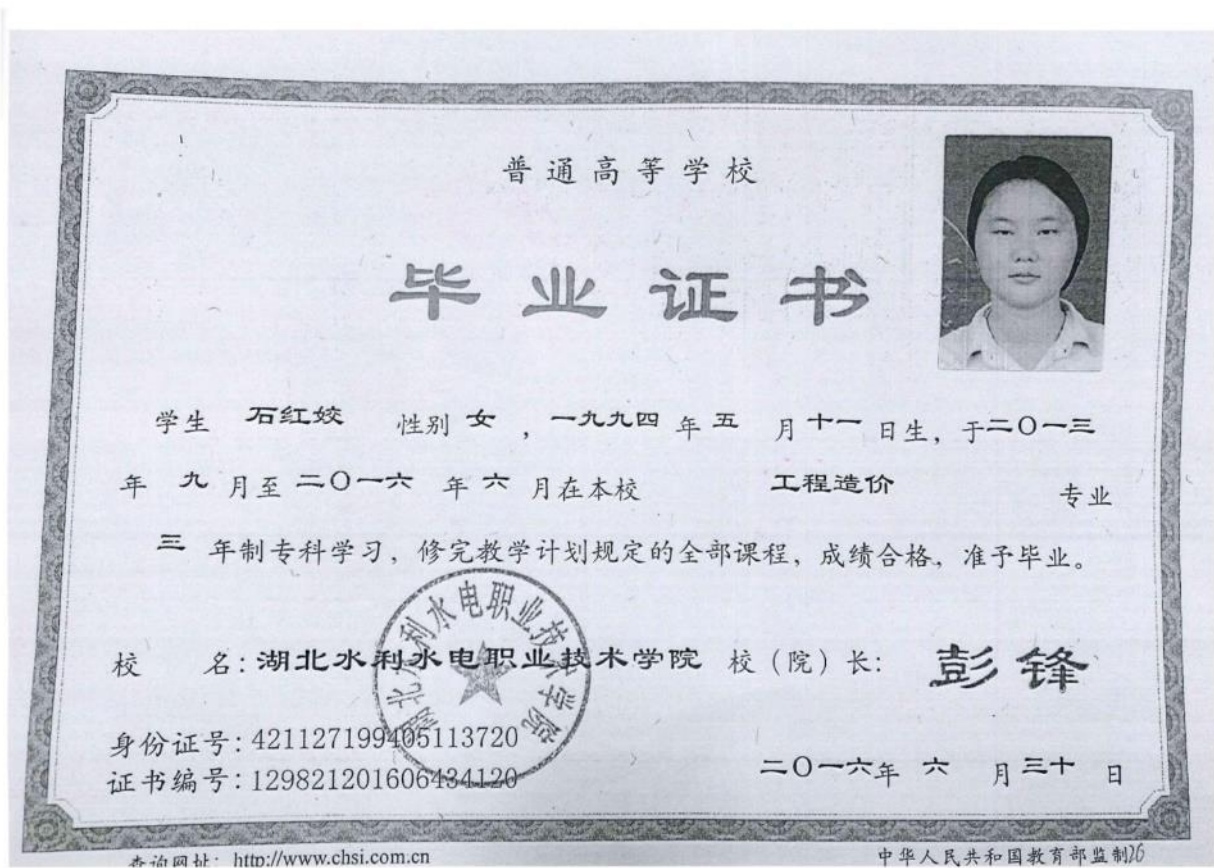 普通高等学校
毕业证书
学生 石红姣 性别 女 ，一九九四 年 五 月 十一 日生，于二〇一三
年 九 月至 二〇一六 年 六 月在本校 工程造价 专业
三 年制专科学习，修完教学计划规定的全部课程，成绩合格，准予毕业。
湖北水利水电职业技术学院
校 名：湖北水利水电职业技术学院 校（院）长： 彭锋
身份证号：421127199405113720
证书编号：129821201606434120
二〇一六年 六 月 三十 日
查询网址：http://www.chsi.com.cn 中华人民共和国教育部监制26